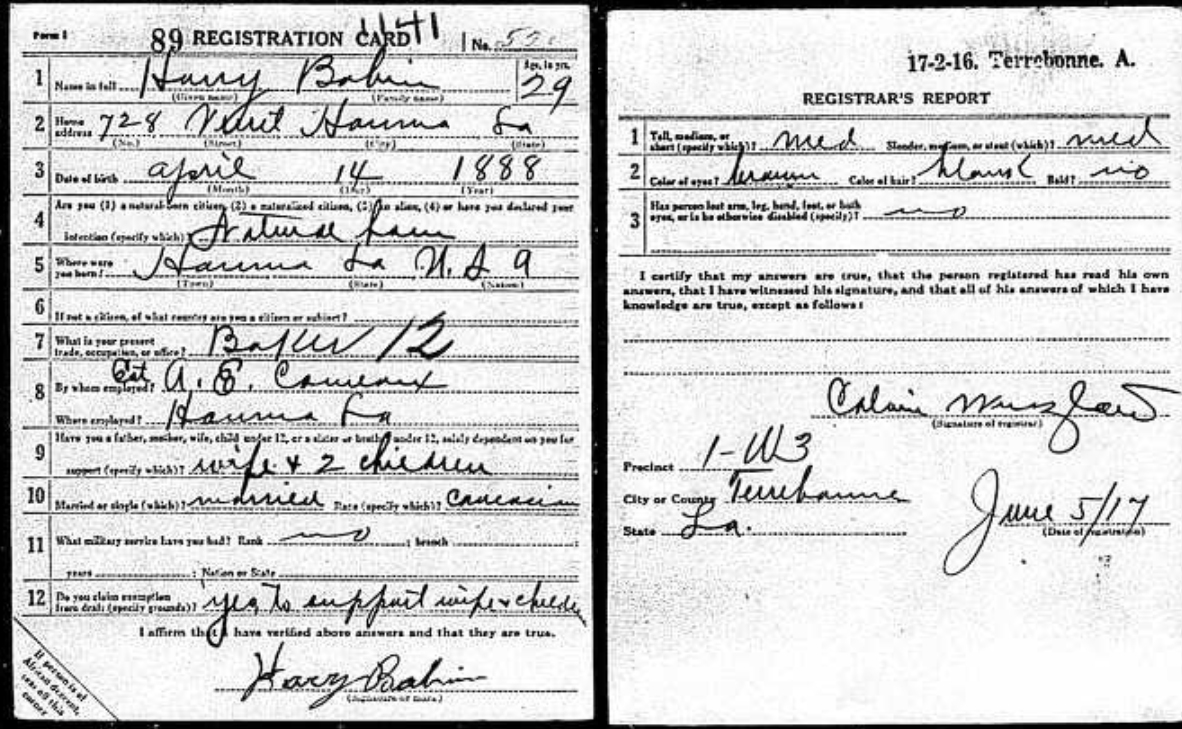 Form 1 89 REGISTRATION CARD No.
1 Name in full Harry Babin Age, in yrs. 29
(Given name) (Family name)
2 Home address 728 Houma La
(No.) (Street) (City) (State)
3 Date of birth april 14 1888
(Month) (Day) (Year)
4 Are you (1) a natural-born citizen, (2) a naturalized citizen, (3) an alien, (4) or have you declared your
intention (specify which)? Natural born
5 Where were you born? Houma La U.S A
(Town) (State) (Nation)
6 If not a citizen, of what country are you a citizen or subject?
7 What is your present trade, occupation, or office? Baker 12
8 By whom employed? Est A. E.
Where employed? Houma La
9 Have you a father, mother, wife, child under 12, or a sister or brother under 12, solely dependent on you for
support (specify which)? wife + 2 children
10 Married or single (which)? married Race (specify which)? Caucasian
11 What military service have you had? Rank no ; branch ;
years ; Nation or State
12 Do you claim exemption from draft (specify grounds)? yes to support wife + children
I affirm that I have verified above answers and that they are true.
Harry Babin
(Signature or mark)
If person is of
African descent,
tear off this
corner
17-2-16. Terrebonne. A.
REGISTRAR'S REPORT
1 Tall, medium, or short (specify which)? med Slender, medium, or stout (which)? med
2 Color of eyes? brown Color of hair? Bald? no
3 Has person lost arm, leg, hand, foot, or both eyes, or is he otherwise disabled (specify)? no
I certify that my answers are true, that the person registered has read his own
answers, that I have witnessed his signature, and that all of his answers of which I have
knowledge are true, except as follows:
(Signature of registrar)
Precinct 1-W3
City or County Terrebonne
State La.
June 5/17
(Date of registration)